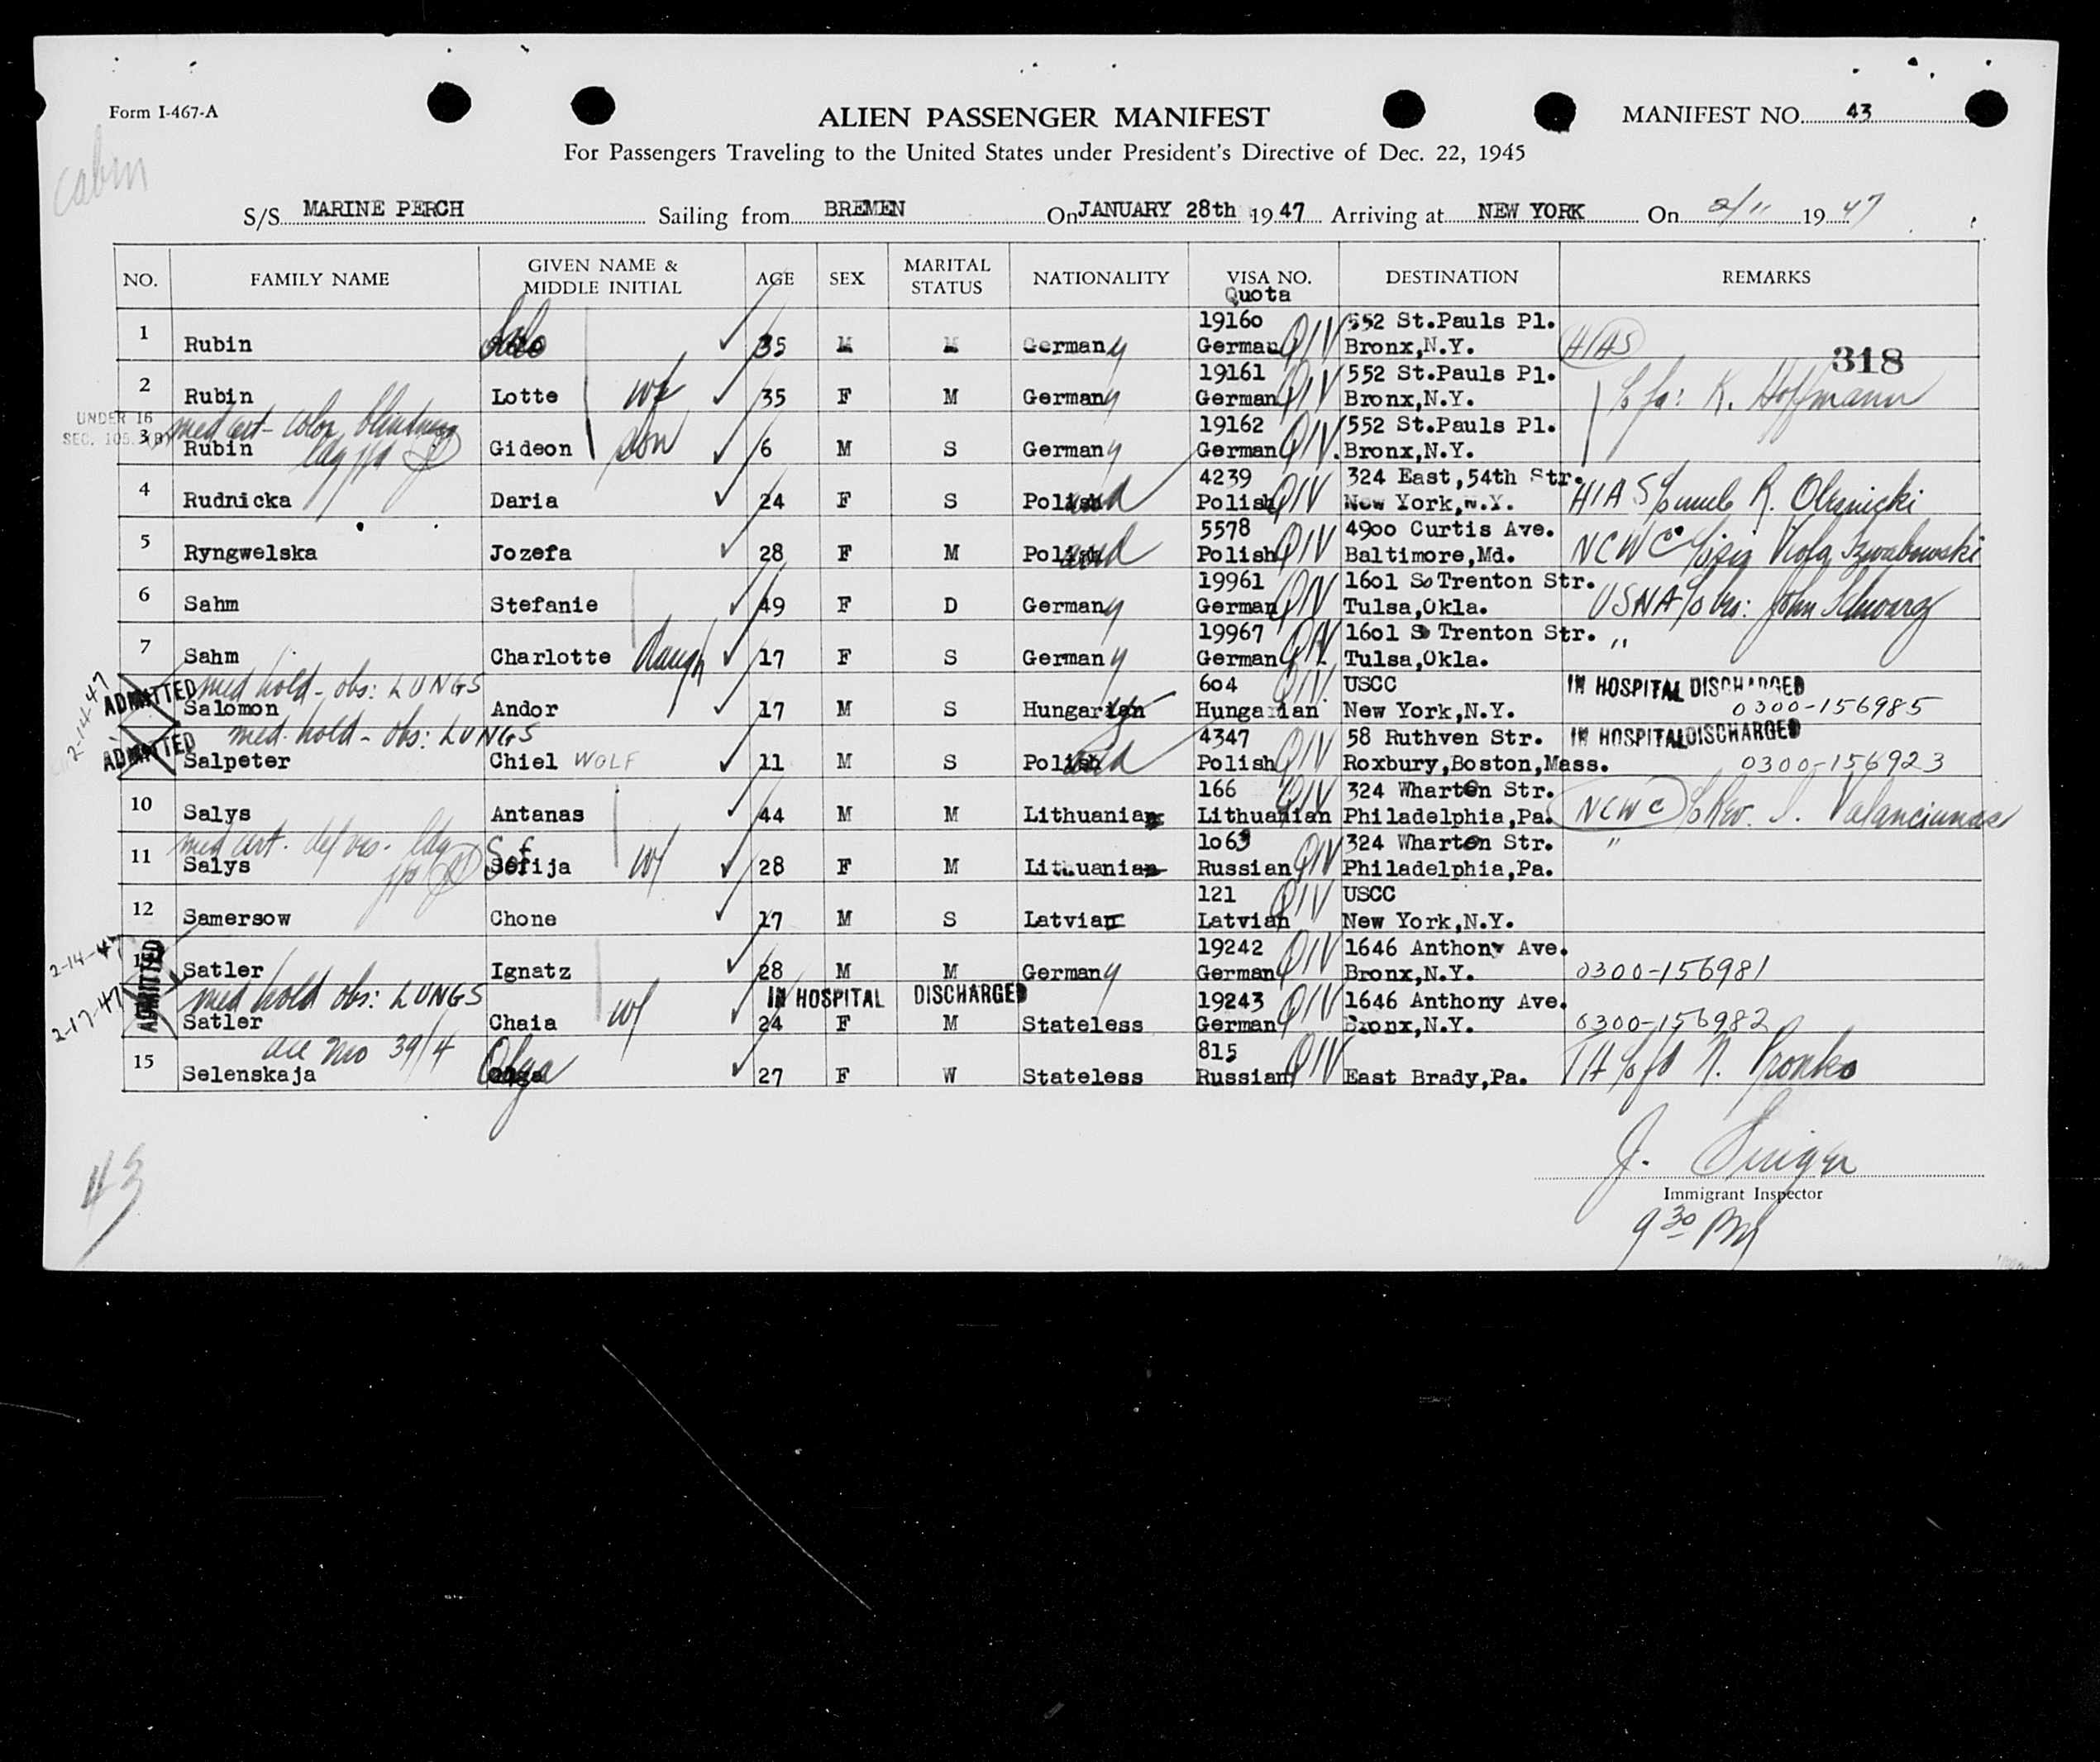 Form I-467-A
ALIEN PASSENGER MANIFEST
MANIFEST NO. 43
For Passengers Traveling to the United States under President's Directive of Dec. 22, 1945
cabin
S/S MARINE PERCH Sailing from BREMEN On JANUARY 28th 1947 Arriving at NEW YORK On 2/11 1947
NO. FAMILY NAME GIVEN NAME & MIDDLE INITIAL AGE SEX MARITAL STATUS NATIONALITY VISA NO. Quota DESTINATION REMARKS
318
1 Rubin 35 M M Germany 19160 German QIV 552 St.Pauls Pl. Bronx,N.Y. HIAS
2 Rubin Lotte wf 35 F M Germany 19161 German QIV 552 St.Pauls Pl. Bronx,N.Y. K. Hoffmann
UNDER 16
SEC. 105.
med cert - color blindness
3 Rubin Gideon son 6 M S Germany 19162 German QIV 552 St.Pauls Pl. Bronx,N.Y.
4 Rudnicka Daria 24 F S Poland 4239 Polish QIV 324 East,54th Str. New York,N.Y. HIAS
5 Ryngwelska Jozefa 28 F M Poland 5578 Polish QIV 4900 Curtis Ave. Baltimore,Md. NCWC Viola
6 Sahm Stefanie 49 F D Germany 19961 German QIV 1601 So Trenton Str. Tulsa,Okla. USNA c/o bro: John Schwarz
7 Sahm Charlotte daugh 17 F S Germany 19967 German QIV 1601 So Trenton Str. Tulsa,Okla. "
2-14-47 ADMITTED med hold - obs: LUNGS
Salomon Andor 17 M S Hungary 604 Hungarian QIV USCC New York,N.Y. IN HOSPITAL DISCHARGED 0300-156985
ADMITTED med. hold - obs: LUNGS
Salpeter Chiel WOLF 11 M S Poland 4347 Polish QIV 58 Ruthven Str. Roxbury,Boston,Mass. IN HOSPITAL DISCHARGED 0300-156923
10 Salys Antanas 44 M M Lithuania 166 Lithuanian QIV 324 Wharton Str. Philadelphia,Pa. NCWC c/o Rev. Valanciunas
med cert. def vis.
11 Salys Sofija wf 28 F M Lithuania 1063 Russian QIV 324 Wharton Str. Philadelphia,Pa. "
12 Samersow Chone 17 M S Latvia 121 Latvian QIV USCC New York,N.Y.
2-14-47 ADMITTED
Satler Ignatz 28 M M Germany 19242 German QIV 1646 Anthony Ave. Bronx,N.Y. 0300-156981
2-17-47 med hold obs: LUNGS IN HOSPITAL DISCHARGED
Satler Chaia wf 24 F M Stateless 19243 German QIV 1646 Anthony Ave. Bronx,N.Y. 0300-156982
15 Selenskaja Olga 27 F W Stateless 815 Russian QIV East Brady,Pa.
J. Singer
Immigrant Inspector
9 30 PM
43